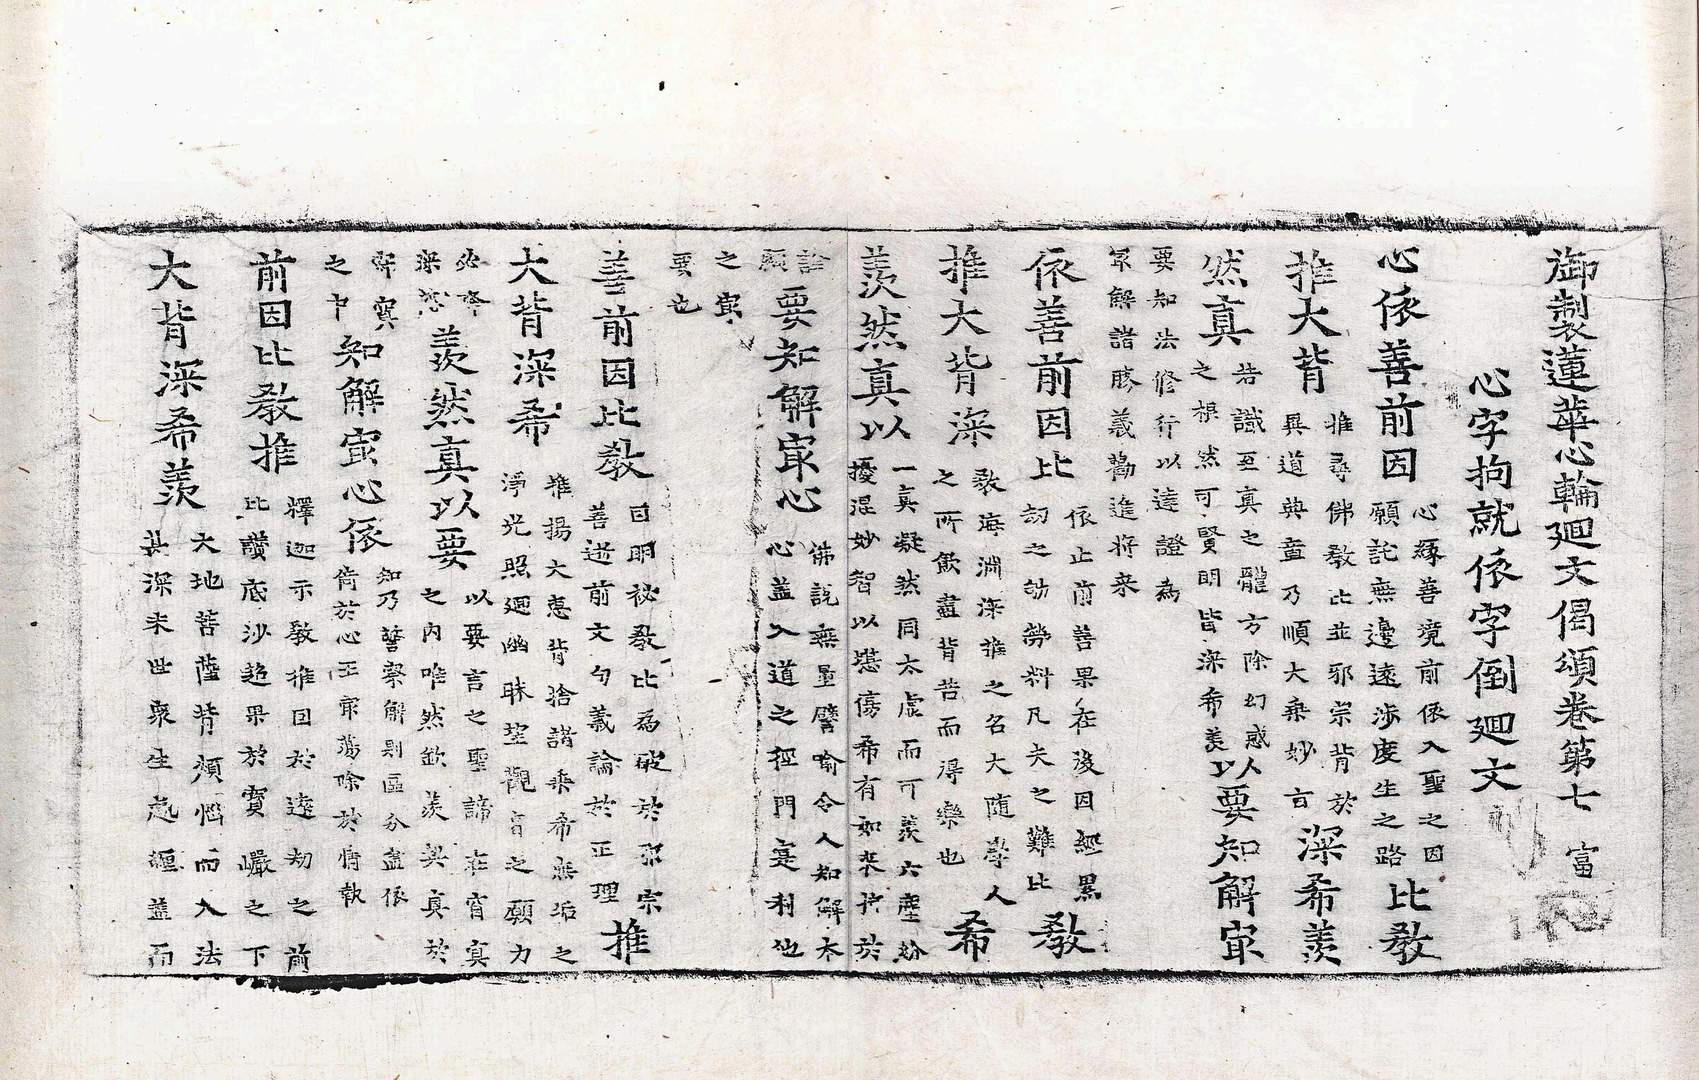 御製蓮華心輪廻文偈頌卷第七 富
心字拘就依字倒廻文
心依善前因
心緣善境前依入聖之因
願託無邊遠涉度生之路
比教
推大背
推尋佛教比並邪宗背於
異道典童乃順大乘妙言
深希羨
然真
若識至真之體方除幻惑
之根然可賢明皆深希羨
以要知解㝡
要知法修行以達證為
㝡解諸勝義勸進將来
依善前因比
依止前善果在後因經累
刧之劬勞料凡夫之難比
教
推大背深
教海淵深推之名大随學人
之所歛盡背苦而得樂也
希
羨然真以
一真凝然同太虛而可羨六塵紛
擾混妙智以悲傷希有如来於
詮
顯
要知解㝡心
佛說無量譬喻令人知解太
心盖入道之徑門寔利他
之㝡
要也
善前因比教
目明祕教比為破於邪宗
善逆前文句義論於正理
推
大背深希
推揚大惠背捨諸乘希無垢之
淨光照廻幽昧望觀音之願力
必齊
深悲
羨然真以要
以要言之聖諦在窅冥
之内唯然歆羨契真於
冥
之中
知解㝡心依
知乃詧察解則區分盡依
倚於心正㝡蕩除於情執
前因比教推
釋迦示教推因於遠劫之前
比讚底沙超果於寶巖之下
大背深希羨
大地菩薩背煩惱而入法
甚深末世衆生處纏蓋而